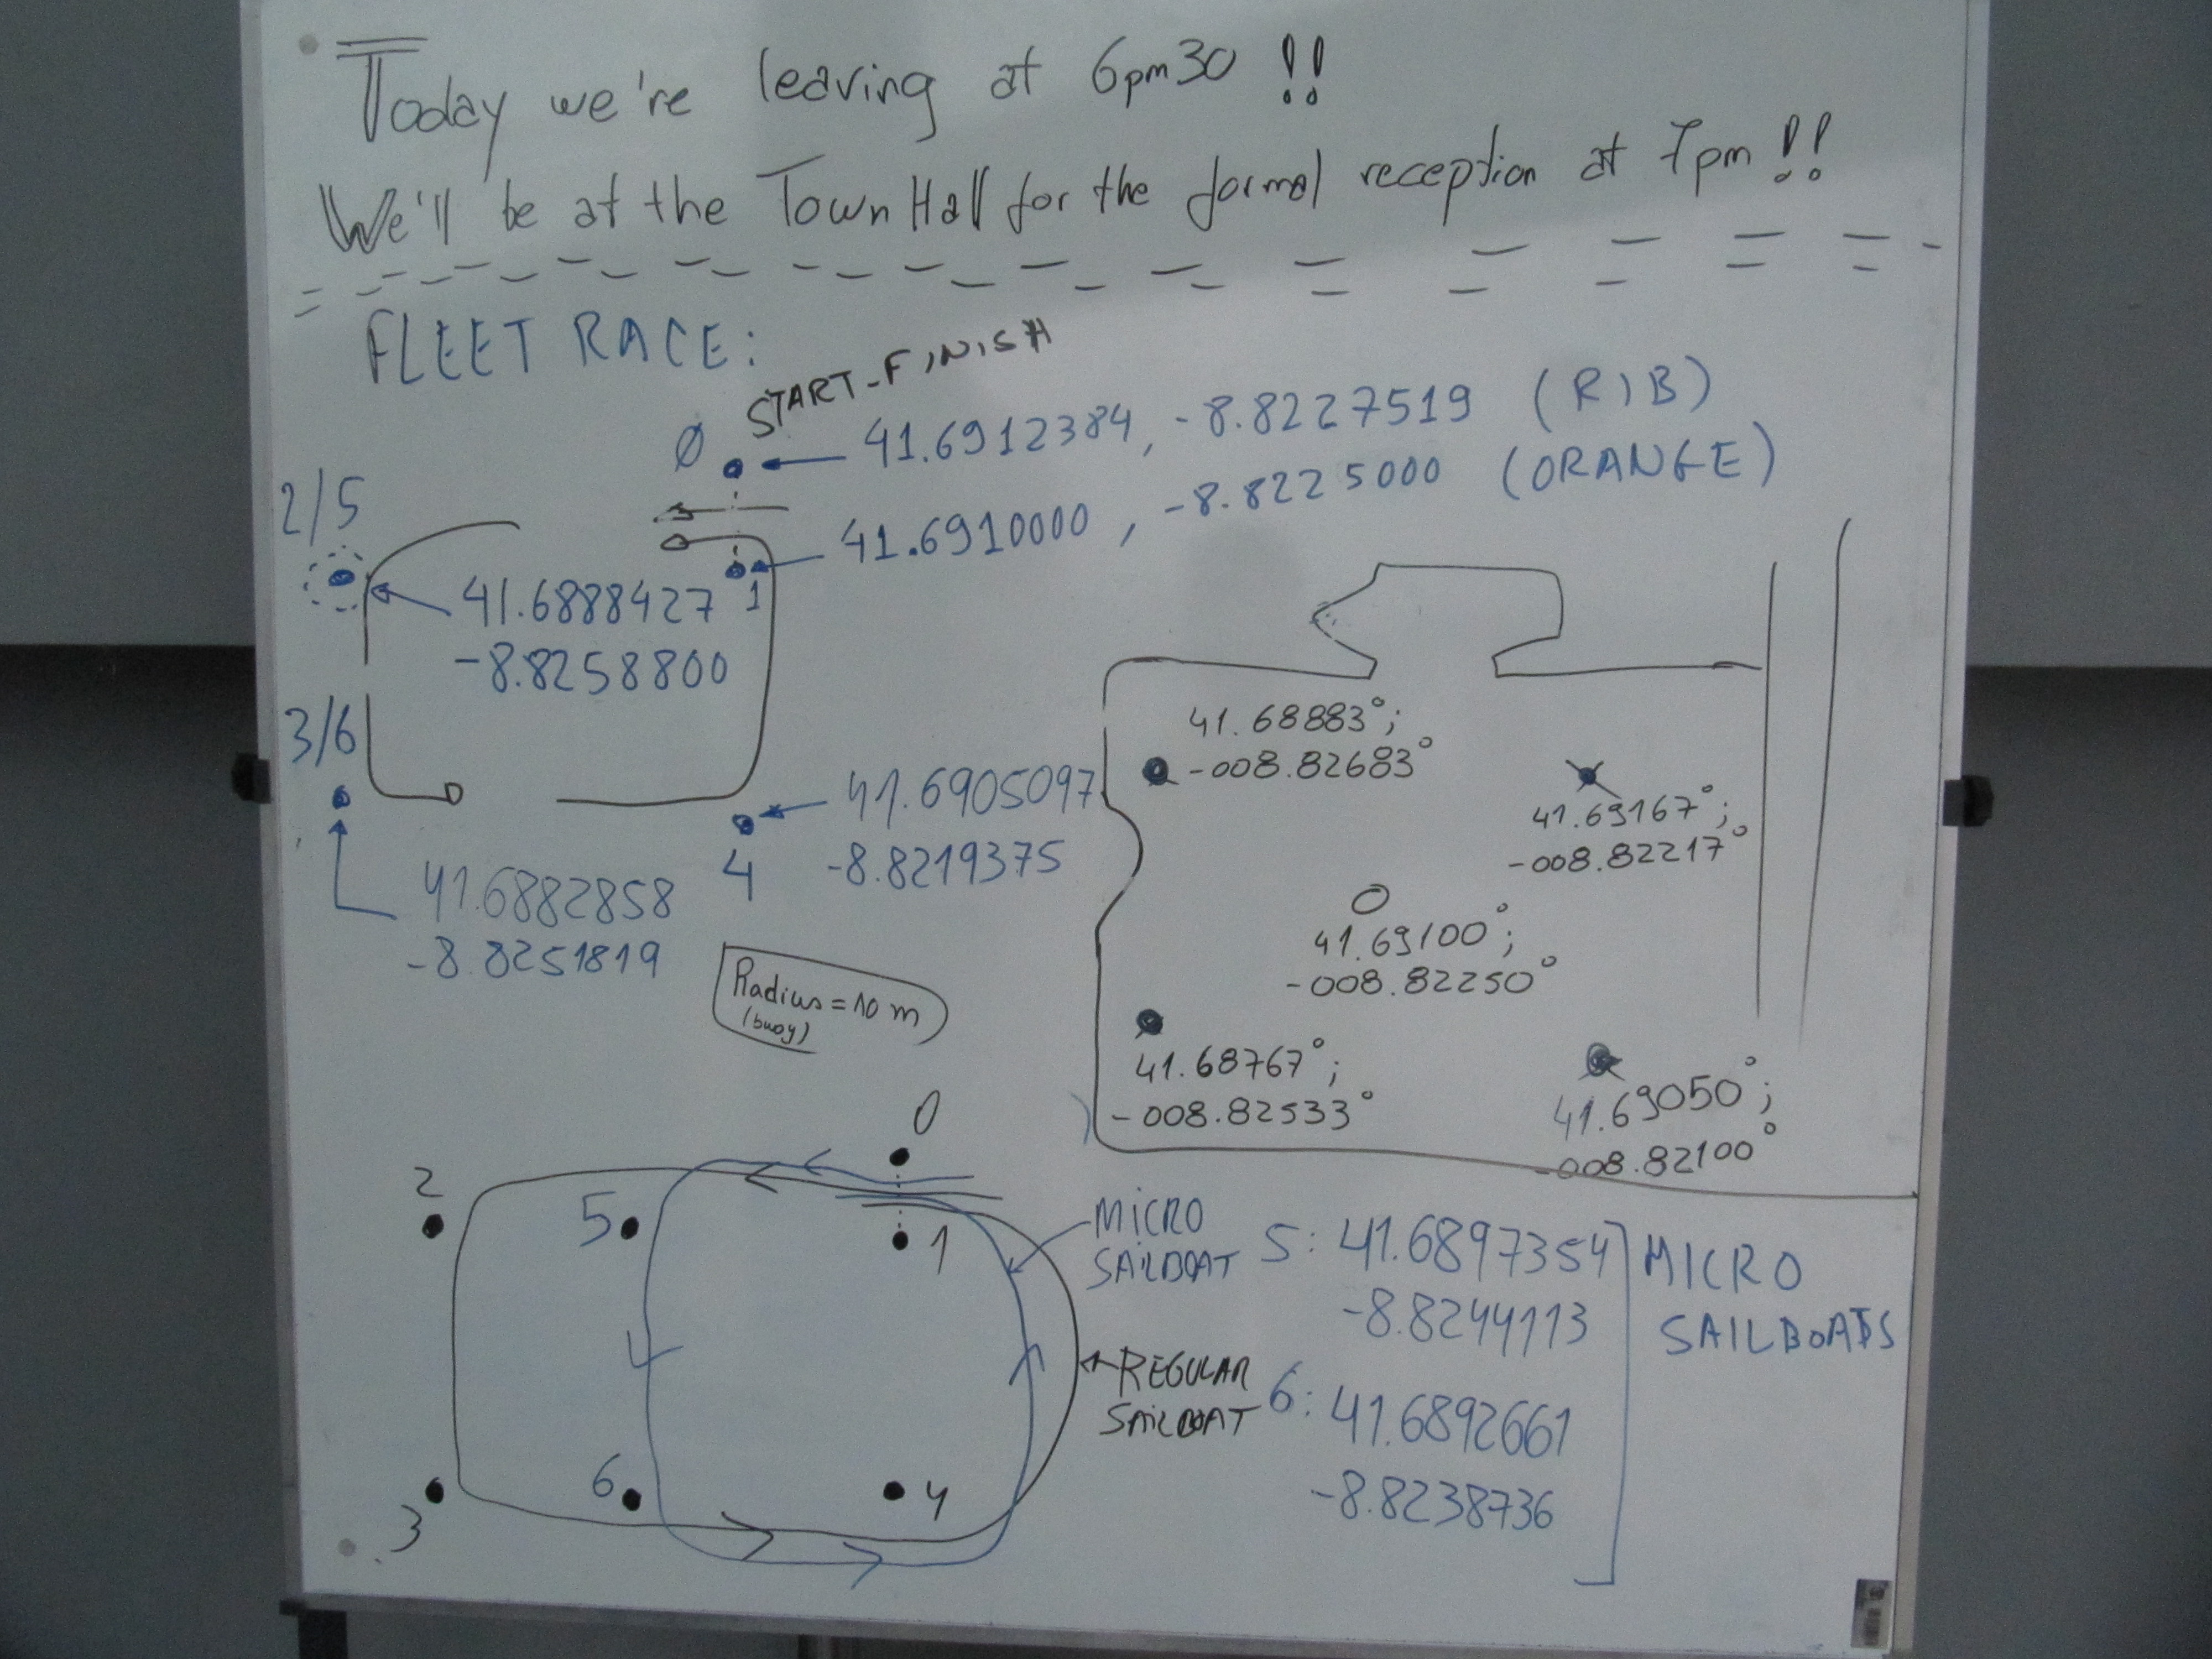 Today we're leaving at 6pm30 !!
We'll be at the Town Hall for the formal reception at 7pm !!
FLEET RACE:
START-FINISH
Ø
41.6912384, -8.8227519 (RIB)
41.6910000, -8.8225000 (ORANGE)
1
2/5
41.6888427
-8.8258800
3/6
41.6882858
-8.8251819
41.6905097
-8.8219375
4
Radius = 10 m
(buoy)
41.68883°;
-008.82683°
41.69167°;
-008.82217°
41.69100°;
-008.82250°
41.68767°;
-008.82533°
41.69050°;
-008.82100°
0
2
5
1
MICRO
SAILBOAT
REGULAR
SAILBOAT
6
4
3
5: 41.6897354
-8.8244113
6: 41.6892661
-8.8238736
MICRO
SAILBOATS